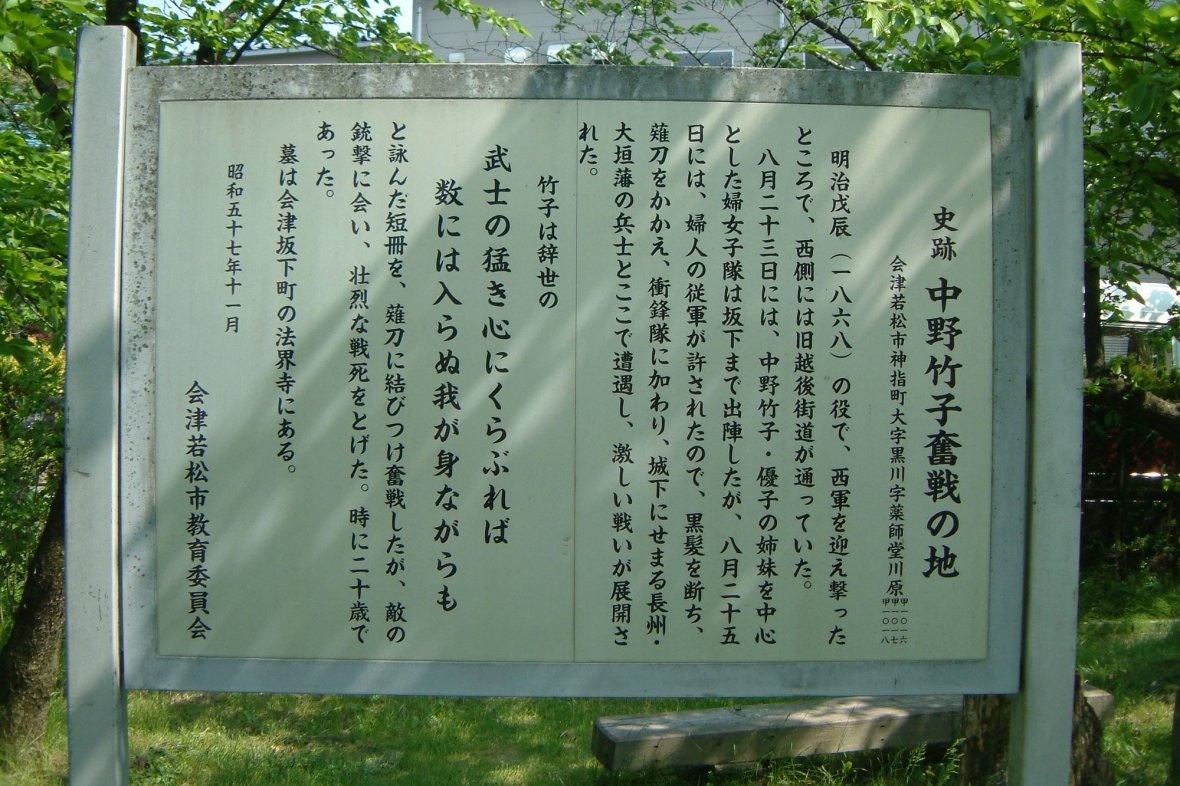 史跡 中野竹子奮戦の地
会津若松市神指町大字黒川字薬師堂川原甲一〇一六
甲一〇一七
甲一〇一八
明治戊辰（一八六八）の役で、西軍を迎え撃った
ところで、西側には旧越後街道が通っていた。
八月二十三日には、中野竹子・優子の姉妹を中心
とした婦女子隊は坂下まで出陣したが、八月二十五
日には、婦人の従軍が許されたので、黒髪を断ち、
薙刀をかかえ、衝鋒隊に加わり、城下にせまる長州・
大垣藩の兵士とここで遭遇し、激しい戦いが展開さ
れた。
竹子は辞世の
武士の猛き心にくらぶれば
数には入らぬ我が身ながらも
と詠んだ短冊を、薙刀に結びつけ奮戦したが、敵の
銃撃に会い、壮烈な戦死をとげた。時に二十歳で
あった。
墓は会津坂下町の法界寺にある。
昭和五十七年十一月
会津若松市教育委員会